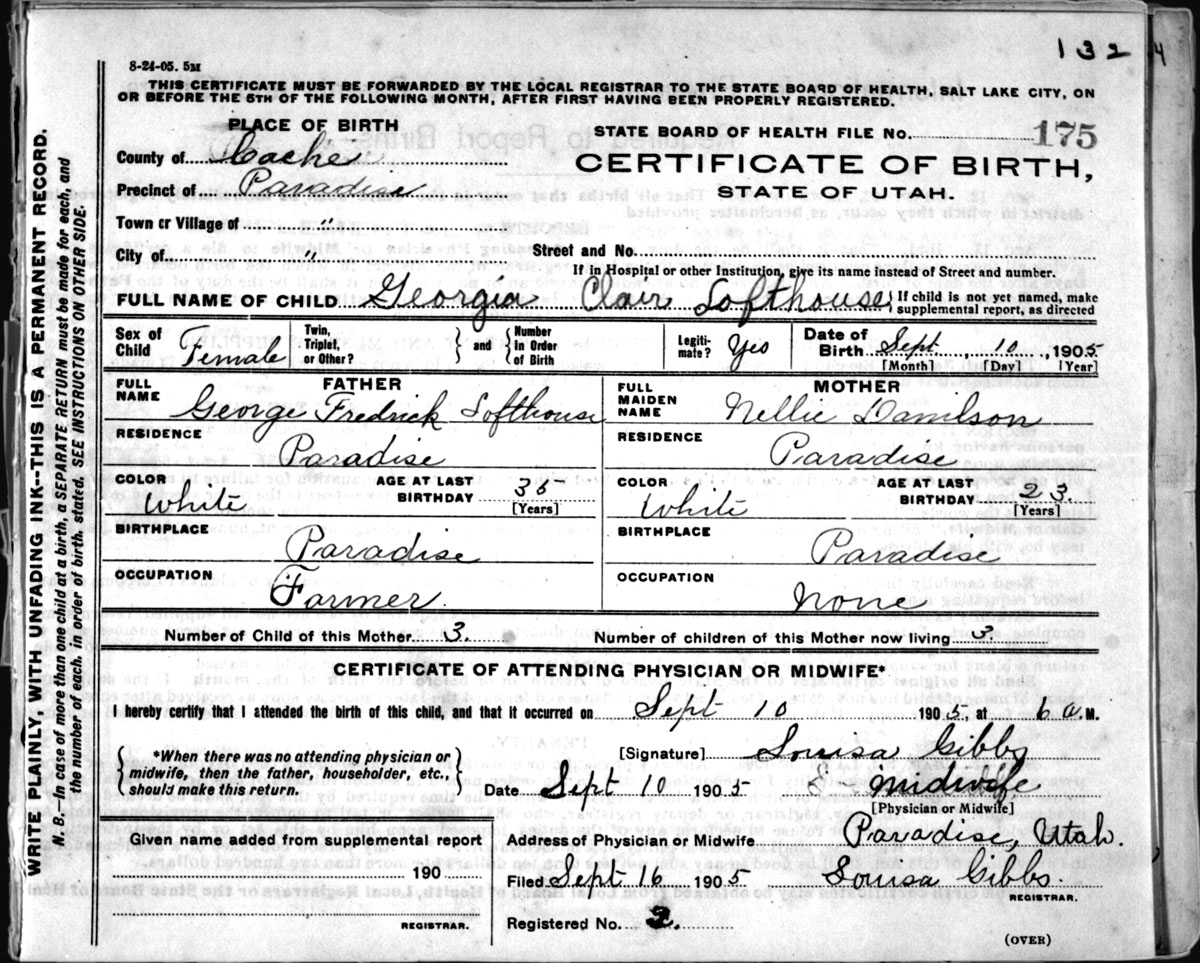 132 4
8-24-05. 5M
THIS CERTIFICATE MUST BE FORWARDED BY THE LOCAL REGISTRAR TO THE STATE BOARD OF HEALTH, SALT LAKE CITY, ON
OR BEFORE THE 5TH OF THE FOLLOWING MONTH, AFTER FIRST HAVING BEEN PROPERLY REGISTERED.
PLACE OF BIRTH
STATE BOARD OF HEALTH FILE NO. 175
County of Cache
CERTIFICATE OF BIRTH,
Precinct of Paradise
STATE OF UTAH.
Town or Village of "
City of " Street and No.
If in Hospital or other Institution, give its name instead of Street and number.
FULL NAME OF CHILD Georgia Clair Lofthouse { If child is not yet named, make
supplemental report, as directed
Sex of Child Female Twin, Triplet, or Other? } and { Number In Order of Birth Legiti-mate? Yes Date of Birth Sept 10, 1905
[Month] [Day] [Year]
FATHER MOTHER
FULL NAME George Fredrick Lofthouse FULL MAIDEN NAME Nellie Danilson
RESIDENCE Paradise RESIDENCE Paradise
COLOR White AGE AT LAST BIRTHDAY 35 [Years] COLOR White AGE AT LAST BIRTHDAY 23. [Years]
BIRTHPLACE Paradise BIRTHPLACE Paradise
OCCUPATION Farmer. OCCUPATION None
Number of Child of this Mother 3. Number of children of this Mother now living 3.
CERTIFICATE OF ATTENDING PHYSICIAN OR MIDWIFE*
I hereby certify that I attended the birth of this child, and that it occurred on Sept 10 1905, at 6 a. M.
{ *When there was no attending physician or
midwife, then the father, householder, etc.,
should make this return. }
[Signature] Louisa Gibbs
Date Sept 10 1905 midwife
[Physician or Midwife]
Given name added from supplemental report
Address of Physician or Midwife Paradise, Utah.
190
Filed Sept 16 1905 Louisa Gibbs.
REGISTRAR.
REGISTRAR.
Registered No. 2.
(OVER)
WRITE PLAINLY, WITH UNFADING INK--THIS IS A PERMANENT RECORD.
N. B.—In case of more than one child at a birth, a SEPARATE RETURN must be made for each, and
the number of each, in order of birth, stated. SEE INSTRUCTIONS ON OTHER SIDE.